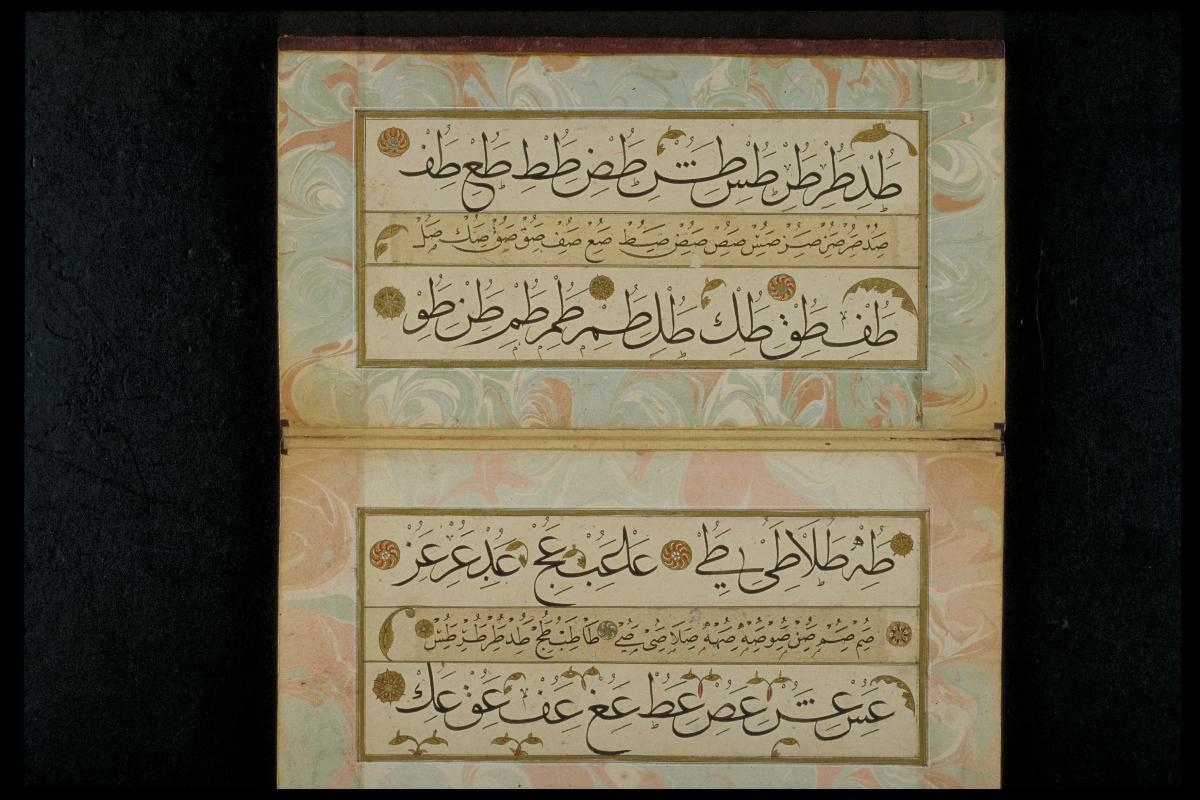 طد طر طر طس طش طض طط طع طف
صد صر صز صر صس صص صض صط صع صف صق صو صك صل
طف طق طك طل طم طم طم طن طو
طه طلا طى طے عا عب عج عد عر عز
صم صم صن صو صه صه صلا صى صے طا طب طج طد طر طر طس
عس عش عص عط عغ عف عق عك